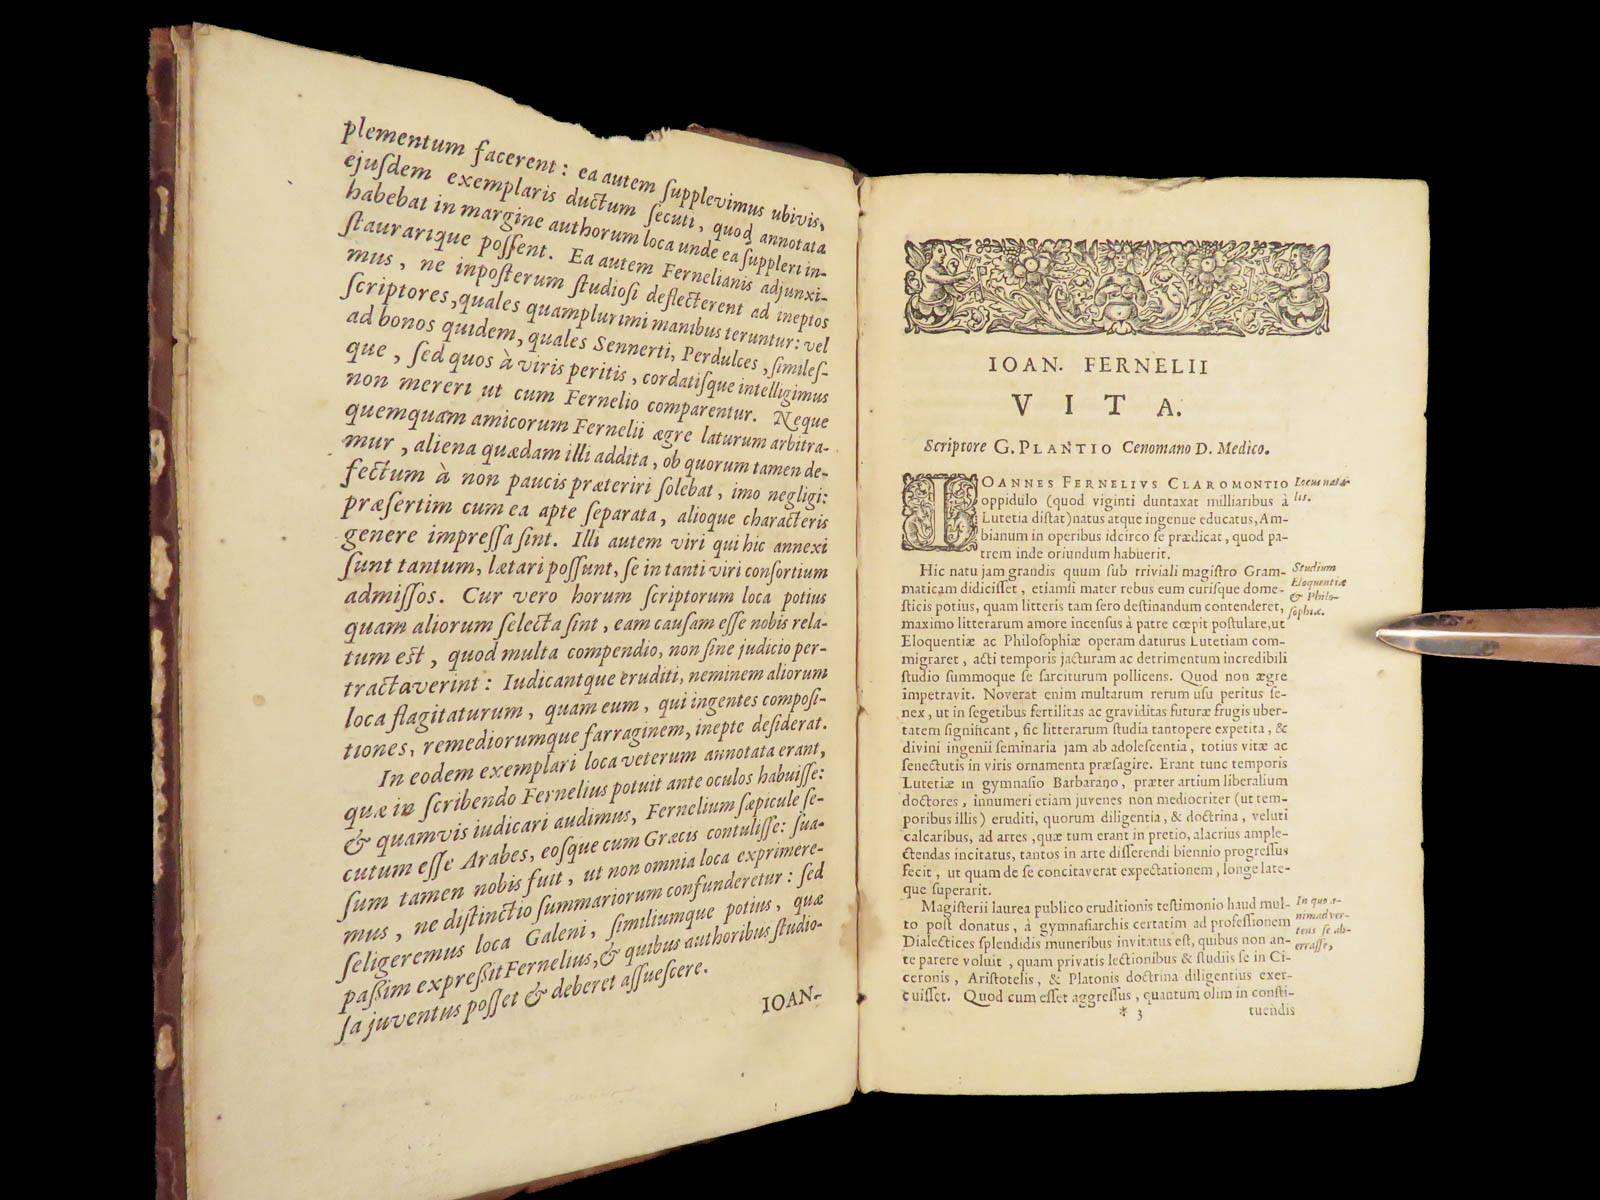 plementum facerent : ea autem ſupplevimus ubivis,
ejuſdem exemplaris ductum ſecuti, quod annotata
habebat in margine authorum loca unde ea ſuppleri in-
ſtaurarique poſſent. Ea autem Fernelianis adjunxi-
mus, ne inpoſterum ſtudioſi deflecterent ad ineptos
ſcriptores, quales quamplurimi manibus teruntur: vel
ad bonos quidem, quales Sennerti, Perdulces, ſimileſ-
que, ſed quos à viris peritis, cordatiſque intelligimus
non mereri ut cum Fernelio comparentur. Neque
quemquam amicorum Fernelii ægre laturum arbitra-
mur, aliena quædam illi addita, ob quorum tamen de-
fectum à non paucis præteriri ſolebat, imo negligi:
præſertim cum ea apte ſeparata, alioque characteris
genere impreſſa ſint. Illi autem viri qui hic annexi
ſunt tantum, lætari poſſunt, ſe in tanti viri conſortium
admiſſos. Cur vero horum ſcriptorum loca potius
quam aliorum ſelecta ſint, eam cauſam eſſe nobis rela-
tum eſt, quod multa compendio, non ſine judicio per-
tractaverint : Iudicantque eruditi, neminem aliorum
loca flagitaturum, quam eum, qui ingentes compoſi-
tiones, remediorumque farraginem, inepte deſiderat.
In eodem exemplari loca veterum annotata erant,
quæ in ſcribendo Fernelius potuit ante oculos habuiſſe:
& quamvis iudicari audimus, Fernelium ſæpicule ſe-
cutum eſſe Arabes, eoſque cum Græcis contuliſſe: ſua-
ſum tamen nobis fuit, ut non omnia loca exprimere-
mus, ne diſtinctio ſummariorum confunderetur : ſed
ſeligeremus loca Galeni, ſimiliumque potius, quæ
paßim expreßit Fernelius, & quibus authoribus ſtudio-
ſa juventus poſſet & deberet aſſueſcere.
IOAN-
IOAN. FERNELII
VITA.
Scriptore G. PLANTIO Cenomano D. Medico.
IOANNES FERNELIVS CLAROMONTIO
oppidulo (quod viginti duntaxat milliaribus à
Lutetia diſtat) natus atque ingenue educatus, Am-
bianum in operibus idcirco ſe prædicat, quod pa-
trem inde oriundum habuerit.
Locus nata-
lis.
Hic natu jam grandis quum ſub triviali magiſtro Gram-
maticam didiciſſet, etiamſi mater rebus eum curiſque dome-
ſticis potius, quam litteris tam ſero deſtinandum contenderet,
maximo litterarum amore incenſus à patre cœpit poſtulare, ut
Eloquentiæ ac Philoſophiæ operam daturus Lutetiam com-
migraret, acti temporis jacturam ac detrimentum incredibili
ſtudio ſummoque ſe ſarciturum pollicens. Quod non ægre
impetravit. Noverat enim multarum rerum uſu peritus ſe-
nex, ut in ſegetibus fertilitas ac graviditas futuræ frugis uber-
tatem ſignificant, ſic litterarum ſtudia tantopere expetita, &
divini ingenii ſeminaria jam ab adoleſcentia, totius vitæ ac
ſenectutis in viris ornamenta præſagire. Erant tunc temporis
Lutetiæ in gymnaſio Barbarano, præter artium liberalium
doctores, innumeri etiam juvenes non mediocriter (ut tem-
poribus illis) eruditi, quorum diligentia, & doctrina, veluti
calcaribus, ad artes, quæ tum erant in pretio, alacrius ample-
ctendas incitatus, tantos in arte diſſerendi biennio progreſſus
fecit, ut quam de ſe concitaverat expectationem, longe late-
que ſuperarit.
Studium
Eloquentiæ
& Philo-
ſophiæ.
Magiſterii laurea publico eruditionis teſtimonio haud mul-
to poſt donatus, à gymnaſiarchis certatim ad profeſſionem
Dialectices ſplendidis muneribus invitatus eſt, quibus non an-
te parere voluit, quam privatis lectionibus & ſtudiis ſe in Ci-
ceronis, Ariſtotelis, & Platonis doctrina diligentius exer-
cuiſſet. Quod cum eſſet aggreſſus, quantum olim in conſti-
In quo a-
nimadver-
tens ſe ab-
erraſſe,
* 3 tuendis